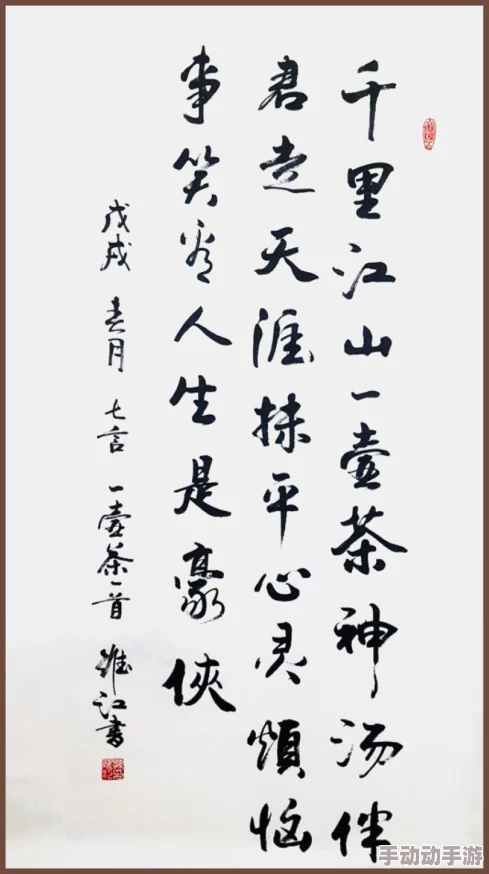 千里江山一壶茶神汤伴
君走天涯抹平心灵烦恼
事笑看人生是豪侠
戊戌春月七言一壶茶一首
江书
手动动手游